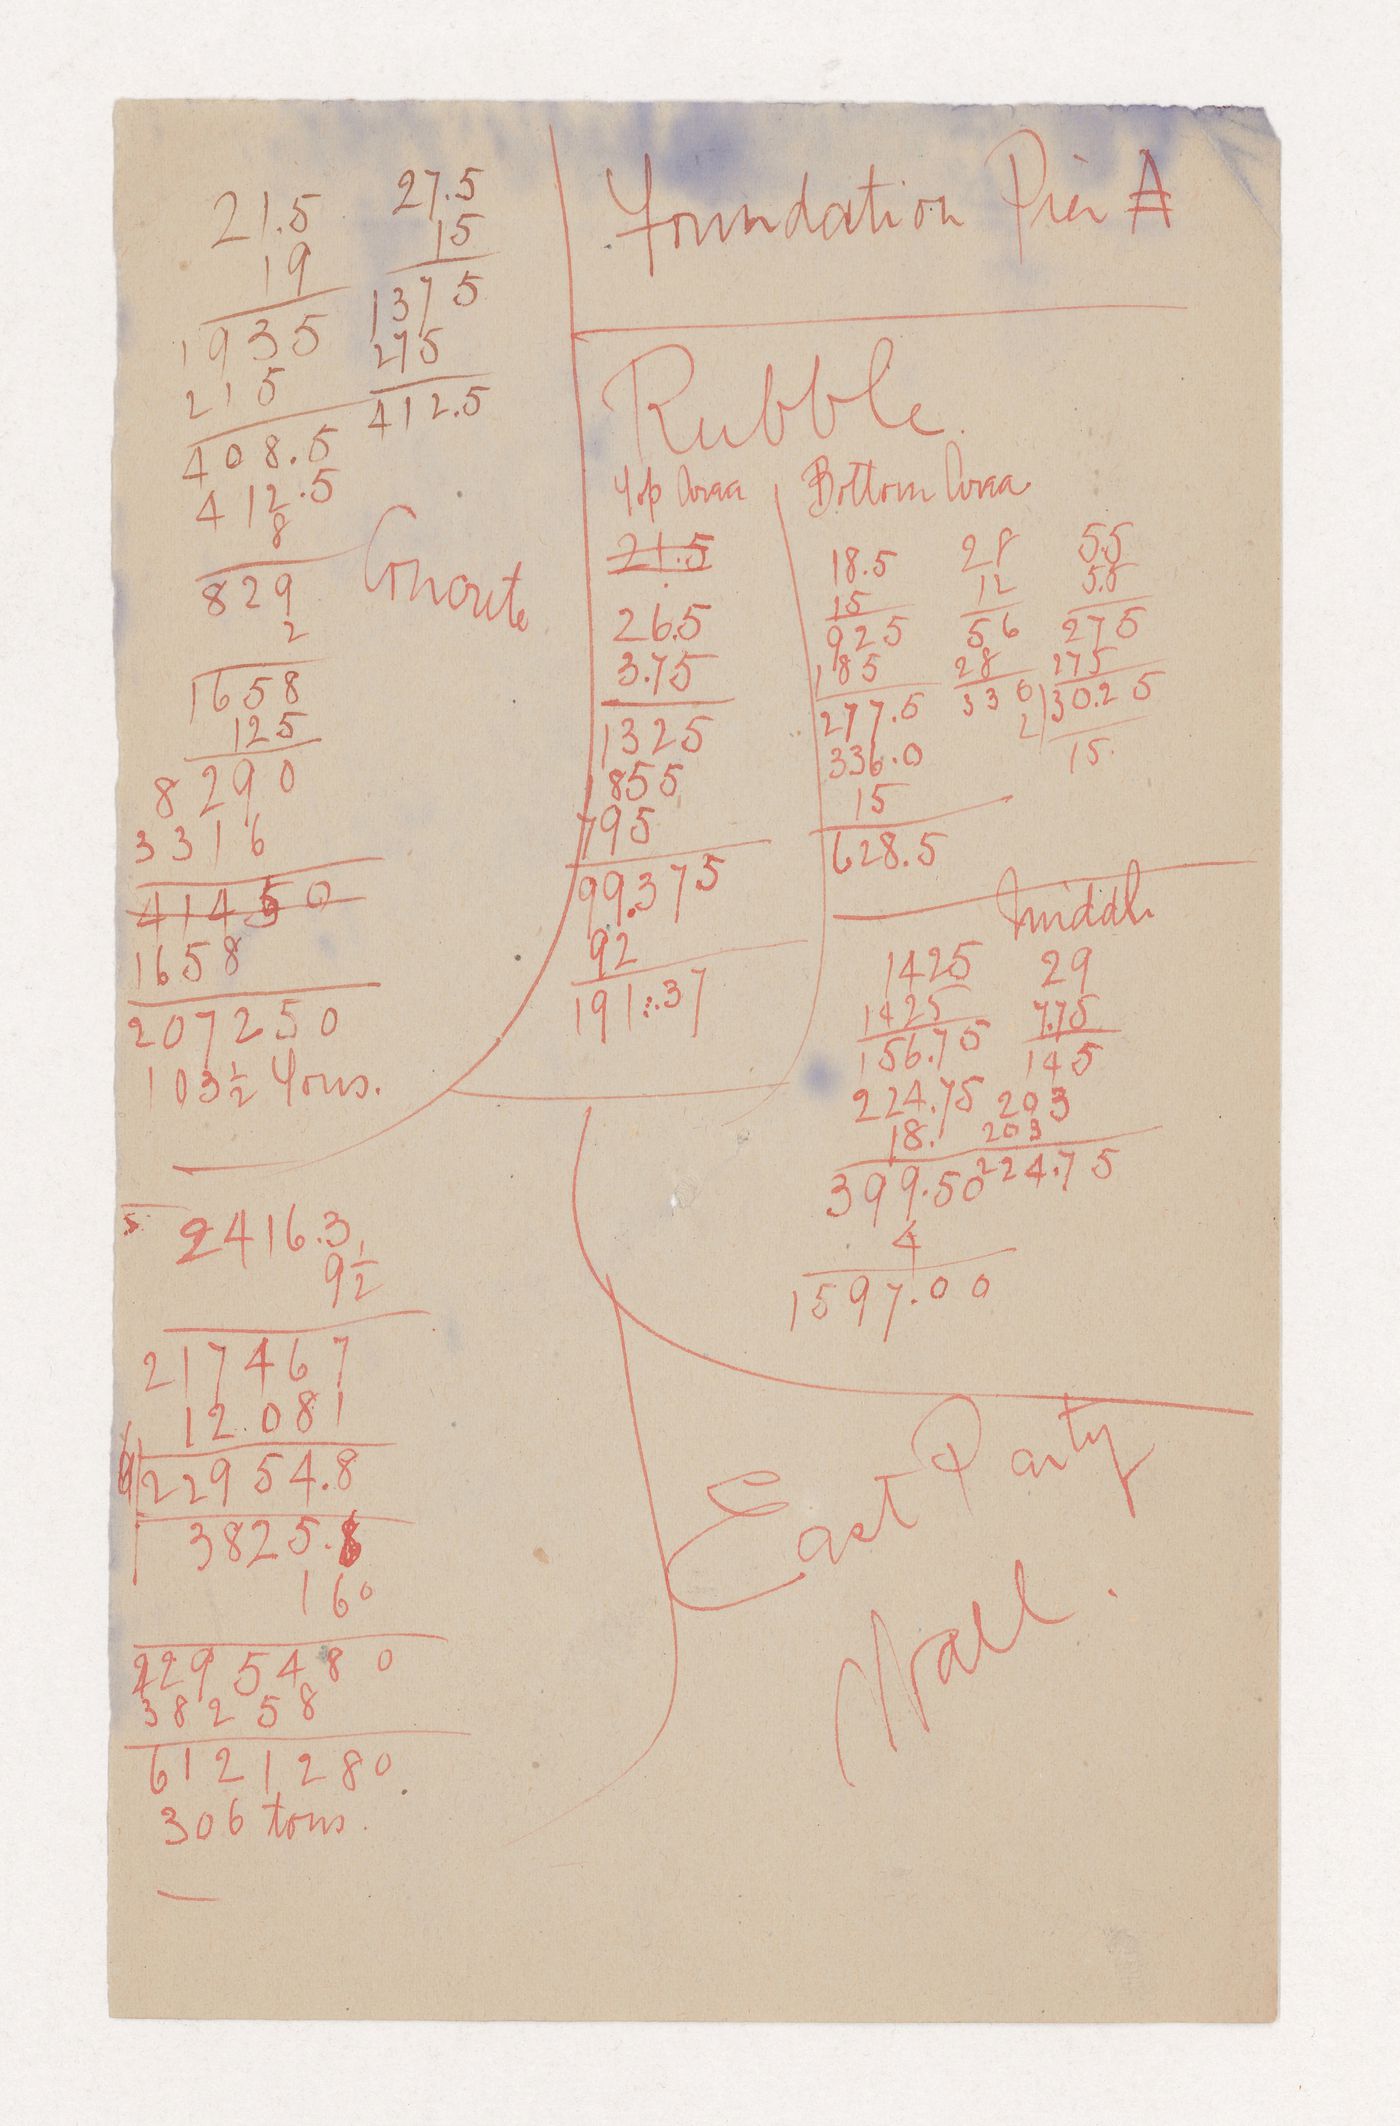 Foundation Pier A
21.5
19
1935
215
408.5
412.5
8
829
2
1658
125
8290
3316
41450
1658
207250
103½ Tons.
27.5
15
1375
275
412.5
Concrete
Rubble
Top Area
21.5
26.5
3.75
1325
855
795
99.375
92
191.37
Bottom Area
18.5
15
925
185
277.5
336.0
15
628.5
28
12
56
28
336
5.5
5.5
275
275
2 30.25
15.
Middle
1425
1425
156.75
224.75
18.
399.50
4
1597.00
29
7.75
145
203
203
224.75
2416.3
9½
217467
12.081
6 22954.8
3825.8
160
2295480
38258
6121280
306 tons.
East Party
Wall.